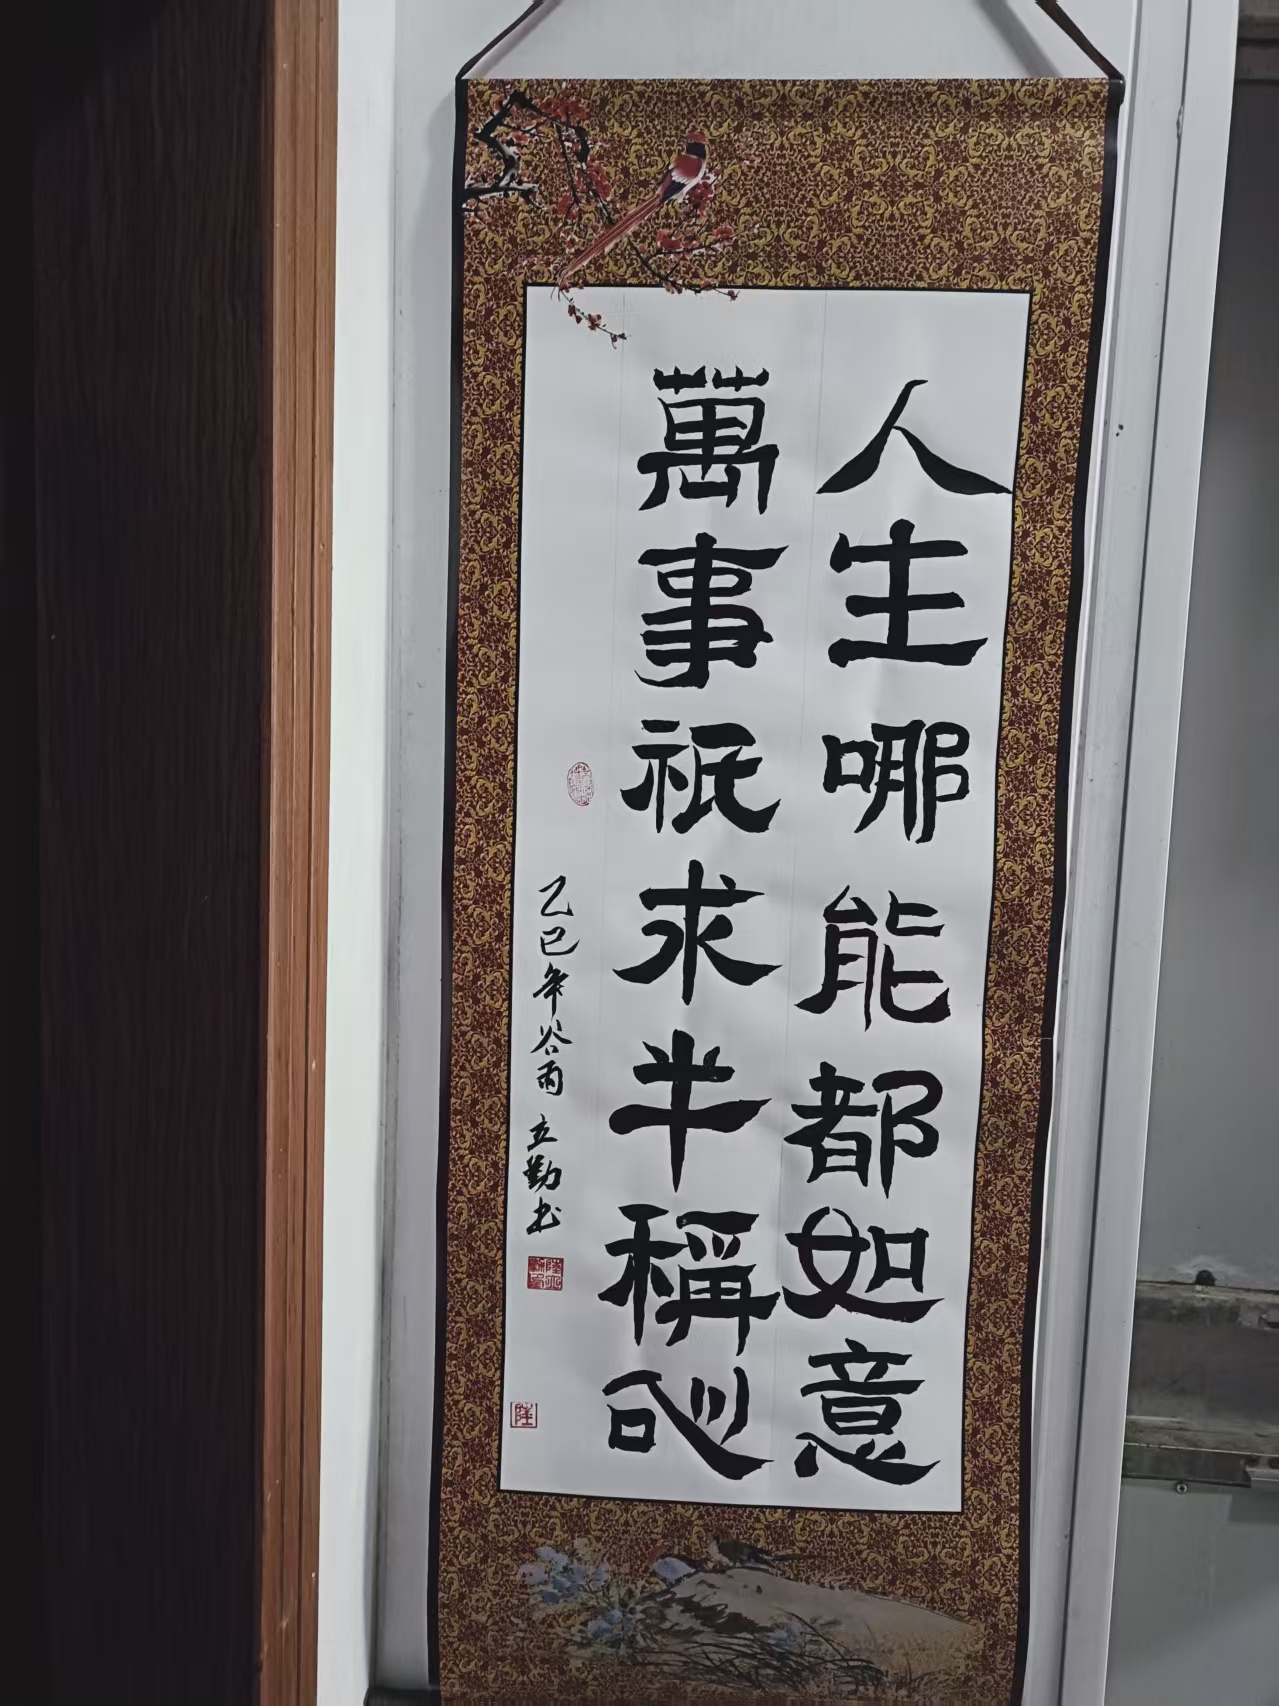 人生哪能都如意
萬事祇求半稱心
乙巳年谷雨 立勤书